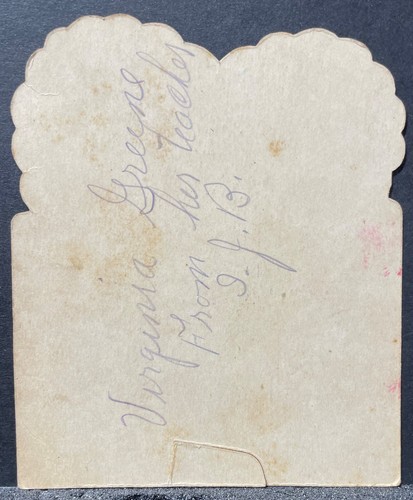 Virginia Greene
From her teacher
I. J. B.